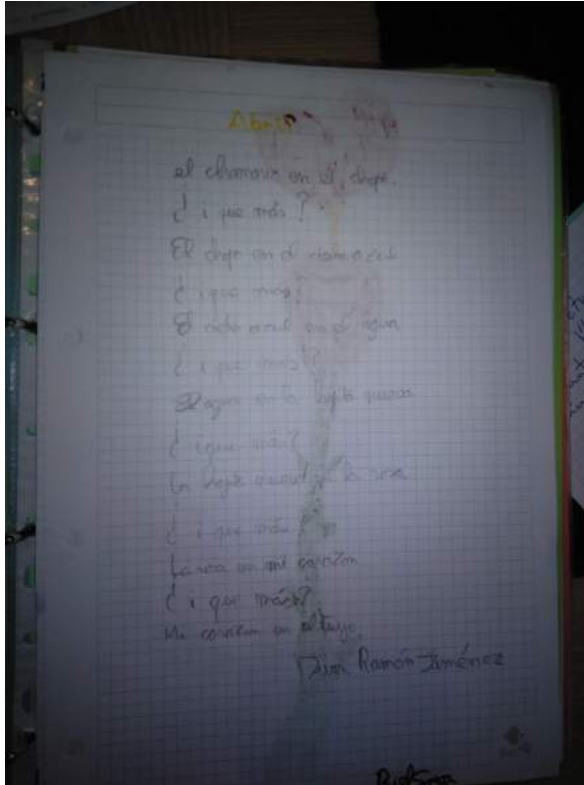 el chamariz en el chopo.
¿i que más?
El chopo en el cielo azul
¿i que más?
El cielo azul en el agua
¿i que más?
El agua en la hojita nueva
¿i que más?
La hojita nueva la rosa
¿i que más
La rosa en mi corazón
¿i que más?
Mi corazón en el tuyo.
Juan Ramón Jiménez